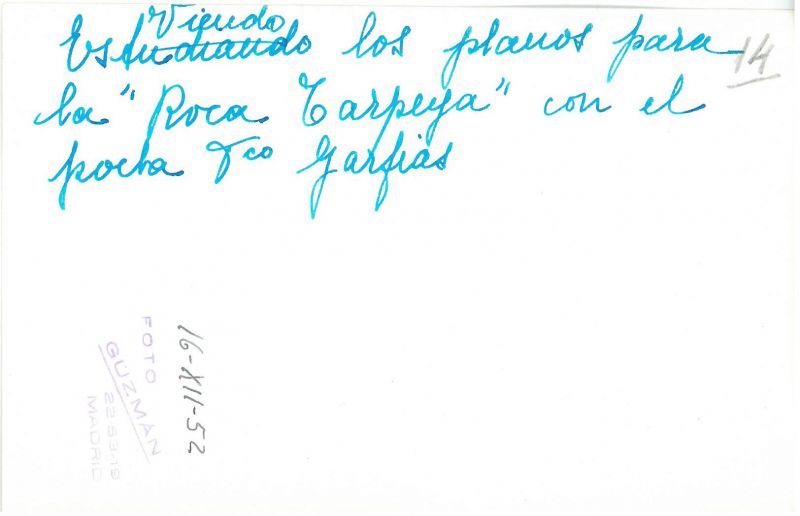 Viendo
Estudiando los planos para
la "Roca Tarpeya" con el
poeta Fco Garfias
14
16-XII-52
FOTO
GUZMÁN
22 53-19
MADRID